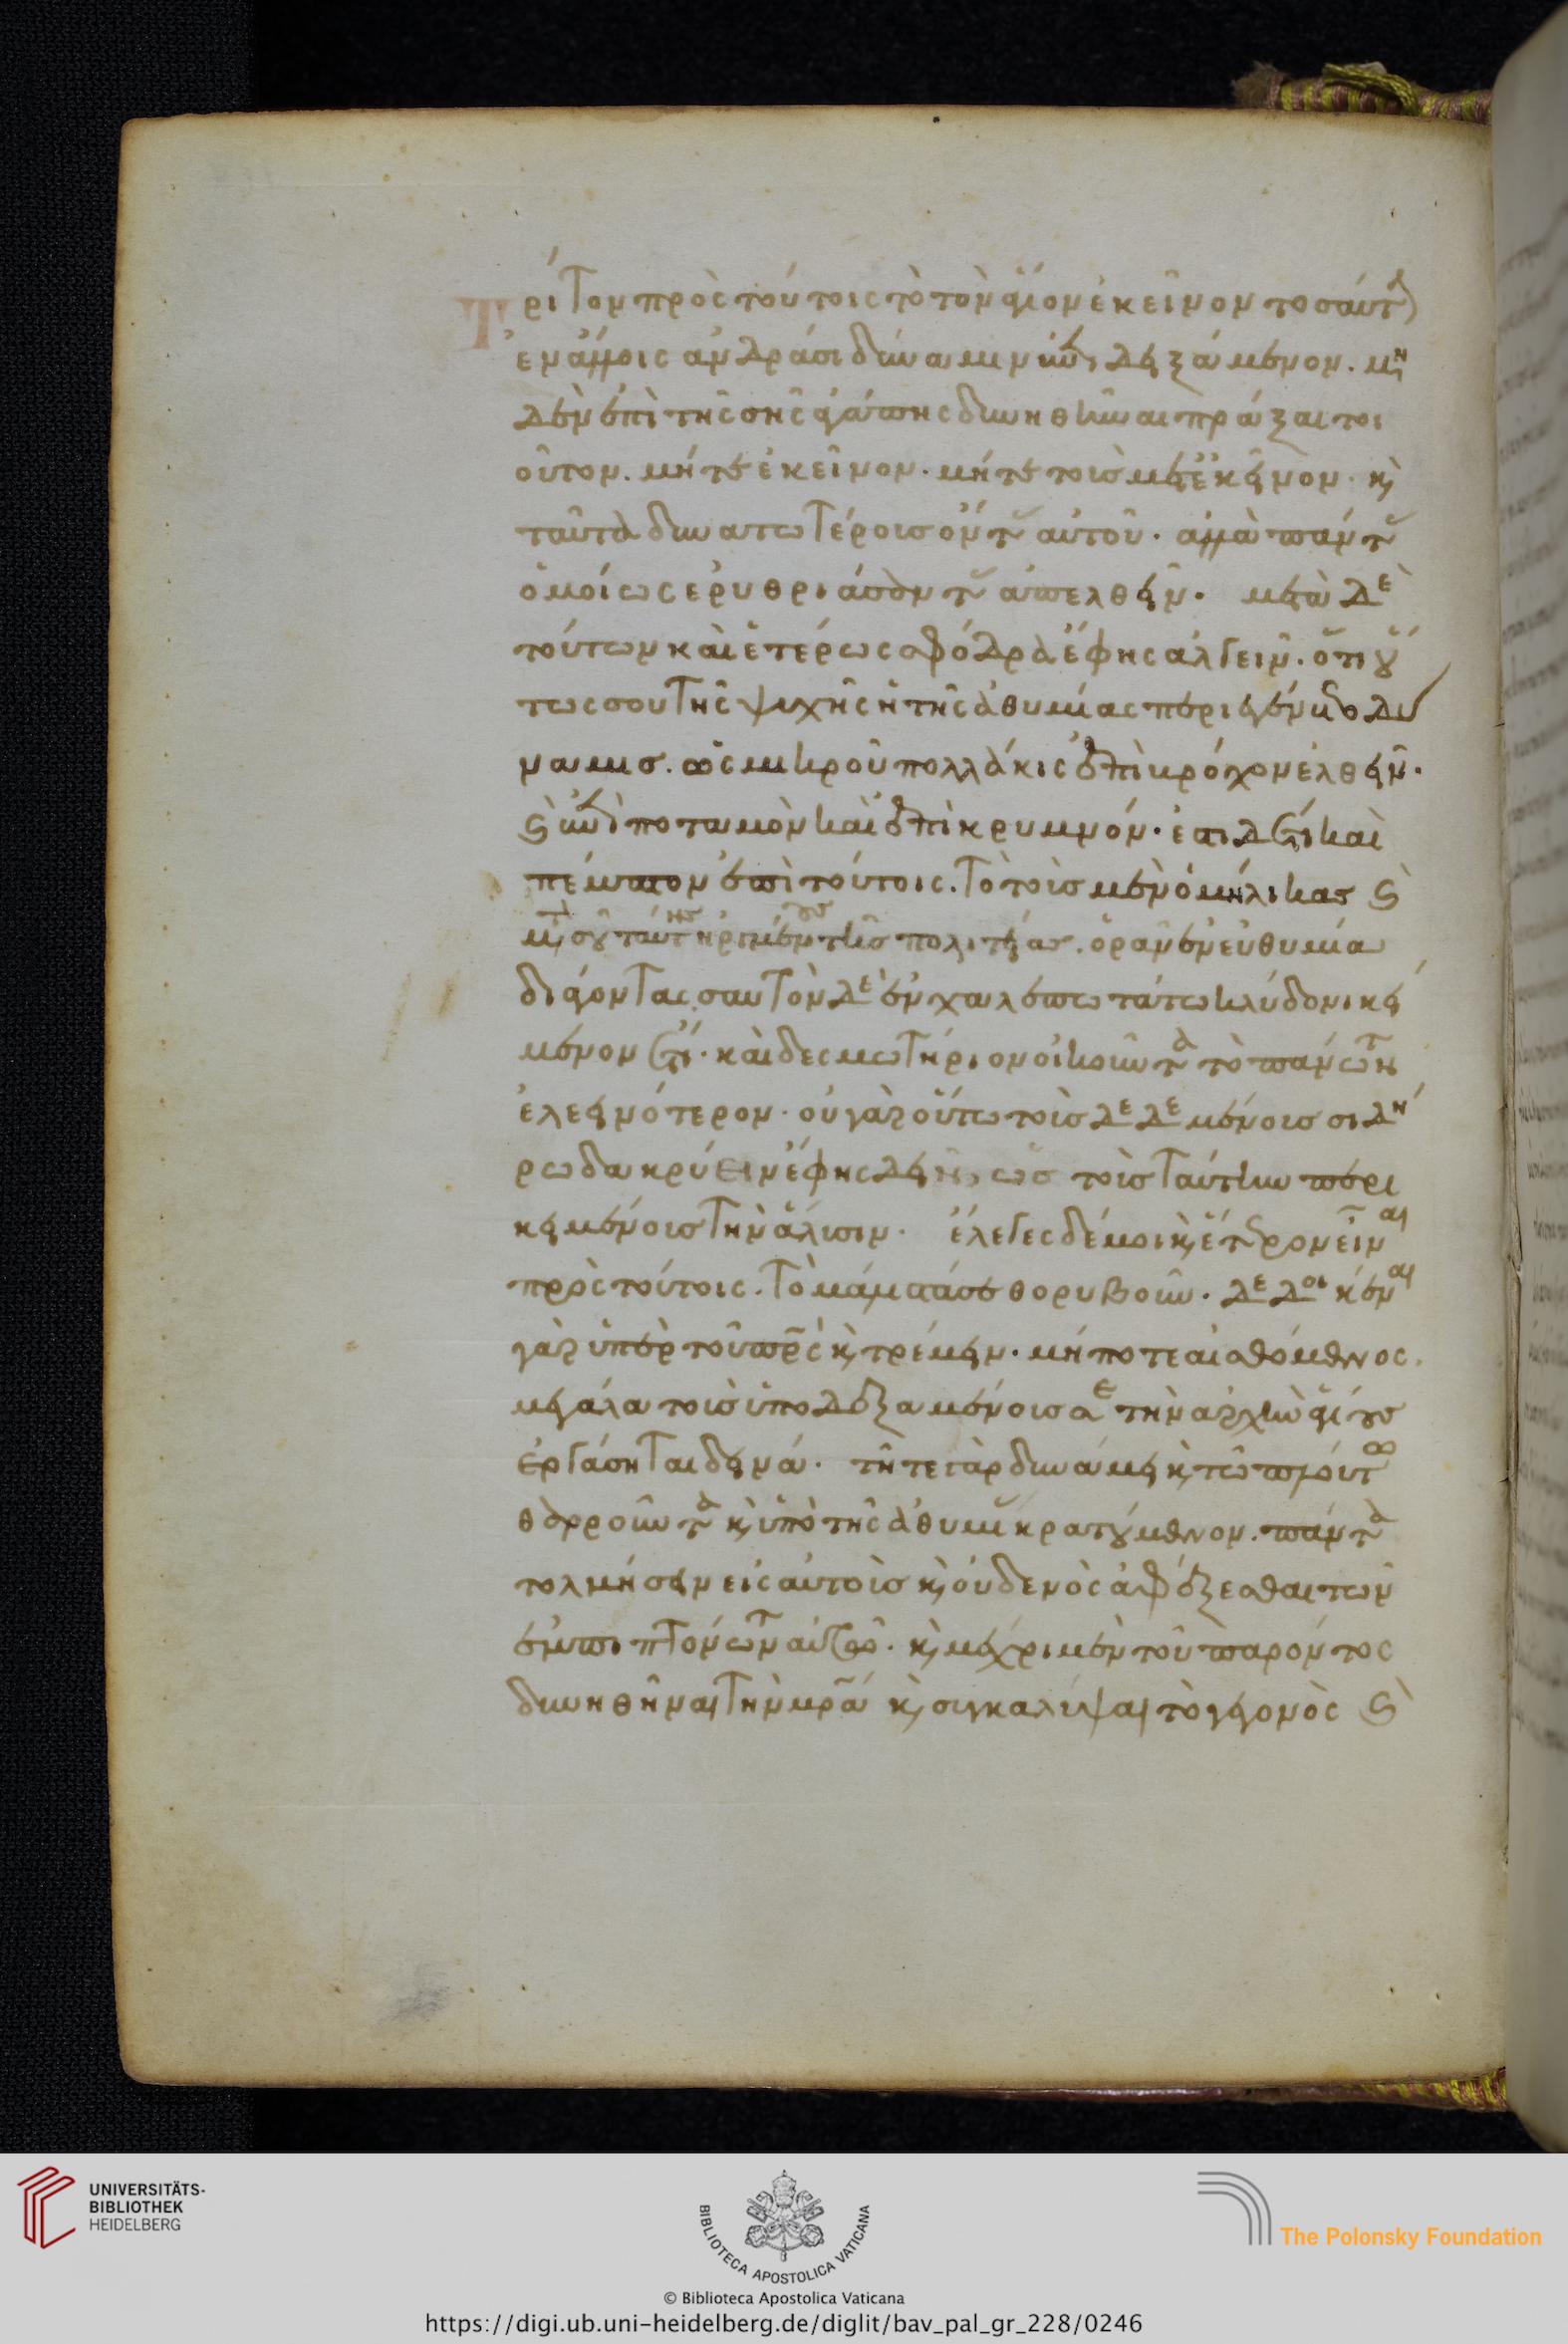 Τρίτον πρὸς τούτοις τὸ τὸν ἅγιον ἐκεῖνον τοσαύτην
ἐν ἄλλοις ἀνδράσι δύναμιν ἐπιδειξάμενον. μη
δὲν ἐπὶ τῆς σῆς ἀγάπης δυνηθῆναι πράξαι τοι
οῦτον. μήτε ἐκεῖνον. μήτε τοὺς μετ ἐκεῖνον. καὶ
ταῦτα δυνατωτέρους ὄντας αὐτοῦ. ἀλλὰ πάντας
ὁμοίως ἐρυθριάσαντας ἀπελθεῖν. μετὰ δὲ
τούτων καὶ ἑτέρως σφόδρα ἔφης ἀλγεῖν. ὅτι οὕ
τως σου τῆς ψυχῆς ἡ τῆς ἀθυμίας περιεγένετο δύ
ναμις. ὡς μικροῦ πολλάκις ἐπὶ βρόχον ἐλθεῖν.
καὶ ἐπὶ ποταμὸν καὶ ἐπὶ κρυμνόν. ἔστι δέ τι καὶ
πέμπτον ἐπὶ τούτοις. τὸ τοὺς μὲν ὁμήλικας καὶ
μετὰ σοῦ ταύτης τῆς πολιτείας. ὁρᾶν ἐν εὐθυμία
διάγοντας, σαυτὸν δὲ ἐν χαλεπωτάτω κλύδονι κεί
μενον ἔτι. καὶ δεσμωτήριον οἰκοῦντα τὸ πάντων
ἐλεεινότερον. οὐ γὰρ οὕτω τοὺς δεδεμένους σιδή
ρω δακρύειν ἔφης δεῖν, ὡς τοὺς ταύτην περι
κειμένους τὴν ἅλυσιν. ἔλεγες δέ μοι καὶ ἕτερον εἶναι
πρὸς τούτοις. τὸ μάλιστά σε θορυβοῦν. δεδοικέναι
γὰρ ὑπὲρ τοῦ πρς καὶ τρέμειν. μήποτε αἰσθόμενος.
μεγάλα τοὺς ὑποδεξαμένους σε τὴν ἀρχὴν ἁγίους
ἐργάσηται δεινά. τῆ τε γὰρ δυνάμει καὶ τῶ πλούτω
θαρροῦντα καὶ ὑπὸ τῆς ἀθυμίας κρατούμενον. πάντα
τολμήσειν εἰς αὐτοὺς καὶ οὐδενὸς ἀφέξεσθαι τῶν
ἐμπιπτόντων αὐτῶ. καὶ μέχρι μὲν τοῦ παρόντος
δυνηθῆναι τὴν μρα καὶ συγκαλύψαι τὸ γεγονὸς καὶ
UNIVERSITÄTS-
BIBLIOTHEK
HEIDELBERG
BIBLIOTECA APOSTOLICA VATICANA
The Polonsky Foundation
© Biblioteca Apostolica Vaticana
https://digi.ub.uni-heidelberg.de/diglit/bav_pal_gr_228/0246